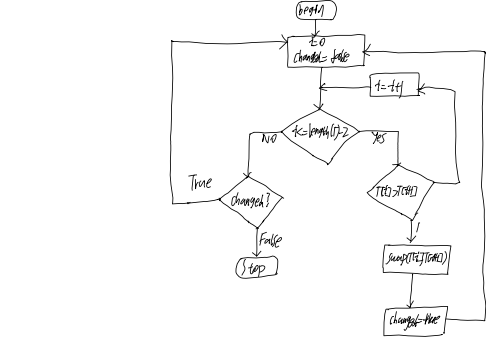 begin
t=0
changed= false
t=t+1
t<=length(T)-2
NO
Yes
True
changed?
T[t]>T[t+1]
False
Stop
swap(T[t],T[t+1])
changed=true